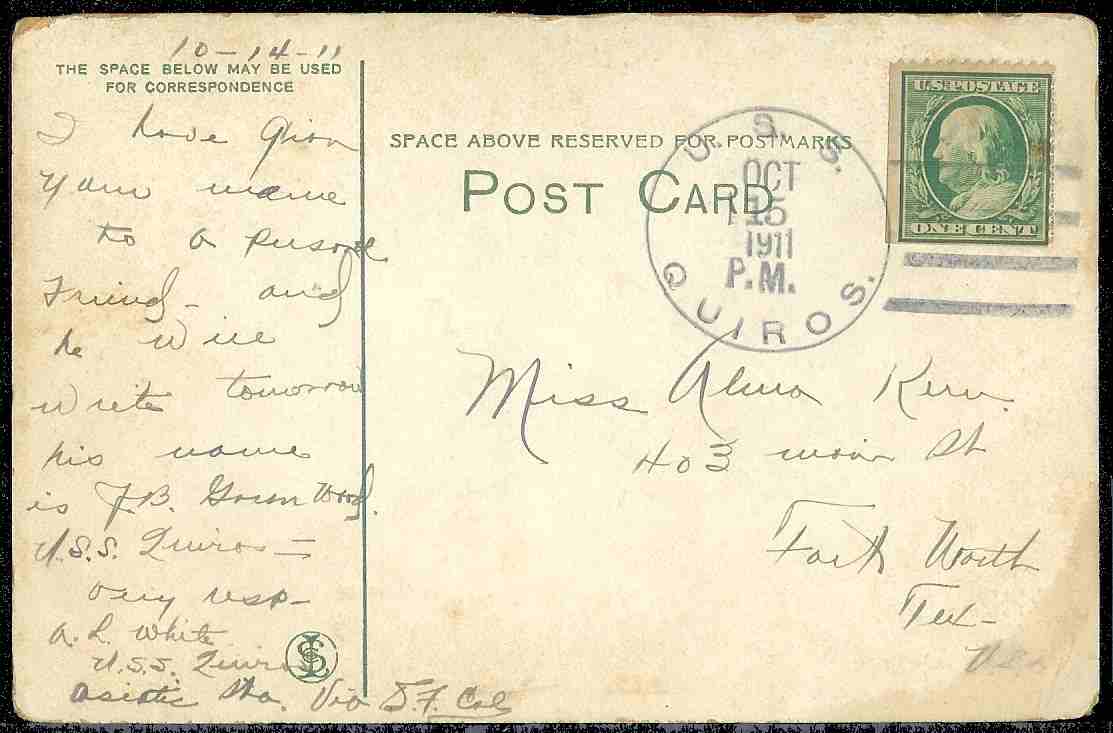 10-14-11
THE SPACE BELOW MAY BE USED
FOR CORRESPONDENCE
I have given
your name
to a personal
Friend - and
he will
write tomorrow
his name
is J.B. Green Wood.
U.S.S. Quiros =
very resp-
A. L. White
U.S.S. Quiros
Asiatic Sta. Via S.F. Cal
SPACE ABOVE RESERVED FOR POSTMARKS
POST CARD
U. S. S.
OCT
15
1911
P.M.
QUIROS.
U.S. POSTAGE
ONE CENT
Miss Alma Kerr.
403 main St
Fort Worth
Tex-